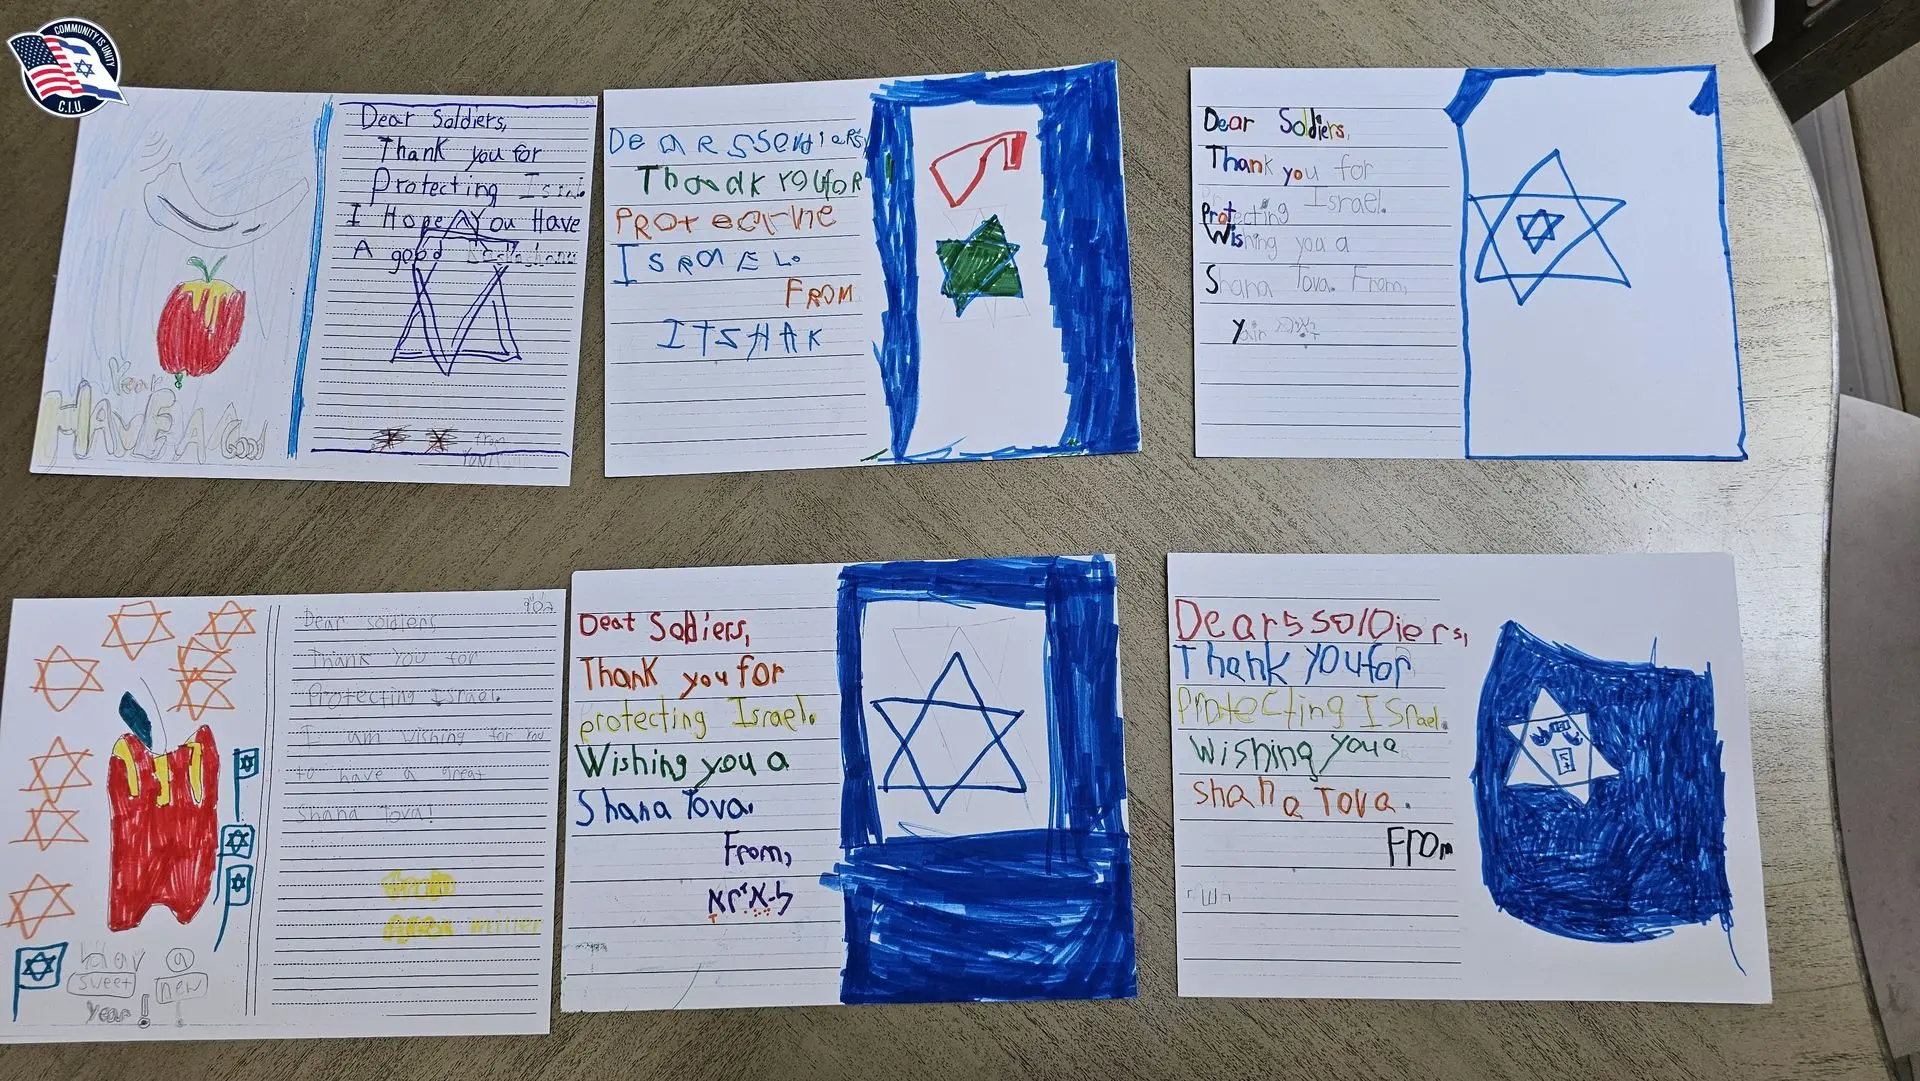 COMMUNITY IS UNITY
C.I.U.
Dear Soldiers,
Thank you for
Protecting
I Hope You Have
A good
from
Year
HAVE A Good
DearsSoldiers,
Thank YOUfOR
PROTecting
ISRAEL.
FROM
ITSHAK
Dear Soldiers,
Thank you for
Protecting Israel.
Wishing you a
Shana Tova. From,
Yair
902
Dear soldiers,
Thank you for
Protecting Israel.
I am wishing for you
to have a great
Shana Tova!
Miller
Hav a
sweet new
year!
Deat Soldiers,
Thank you for
protecting Israel.
Wishing you a
Shana Tova.
From,
Dears soldiers,
Thank YOUfor
Protecting Israel.
Wishing you a
shana Tova.
From